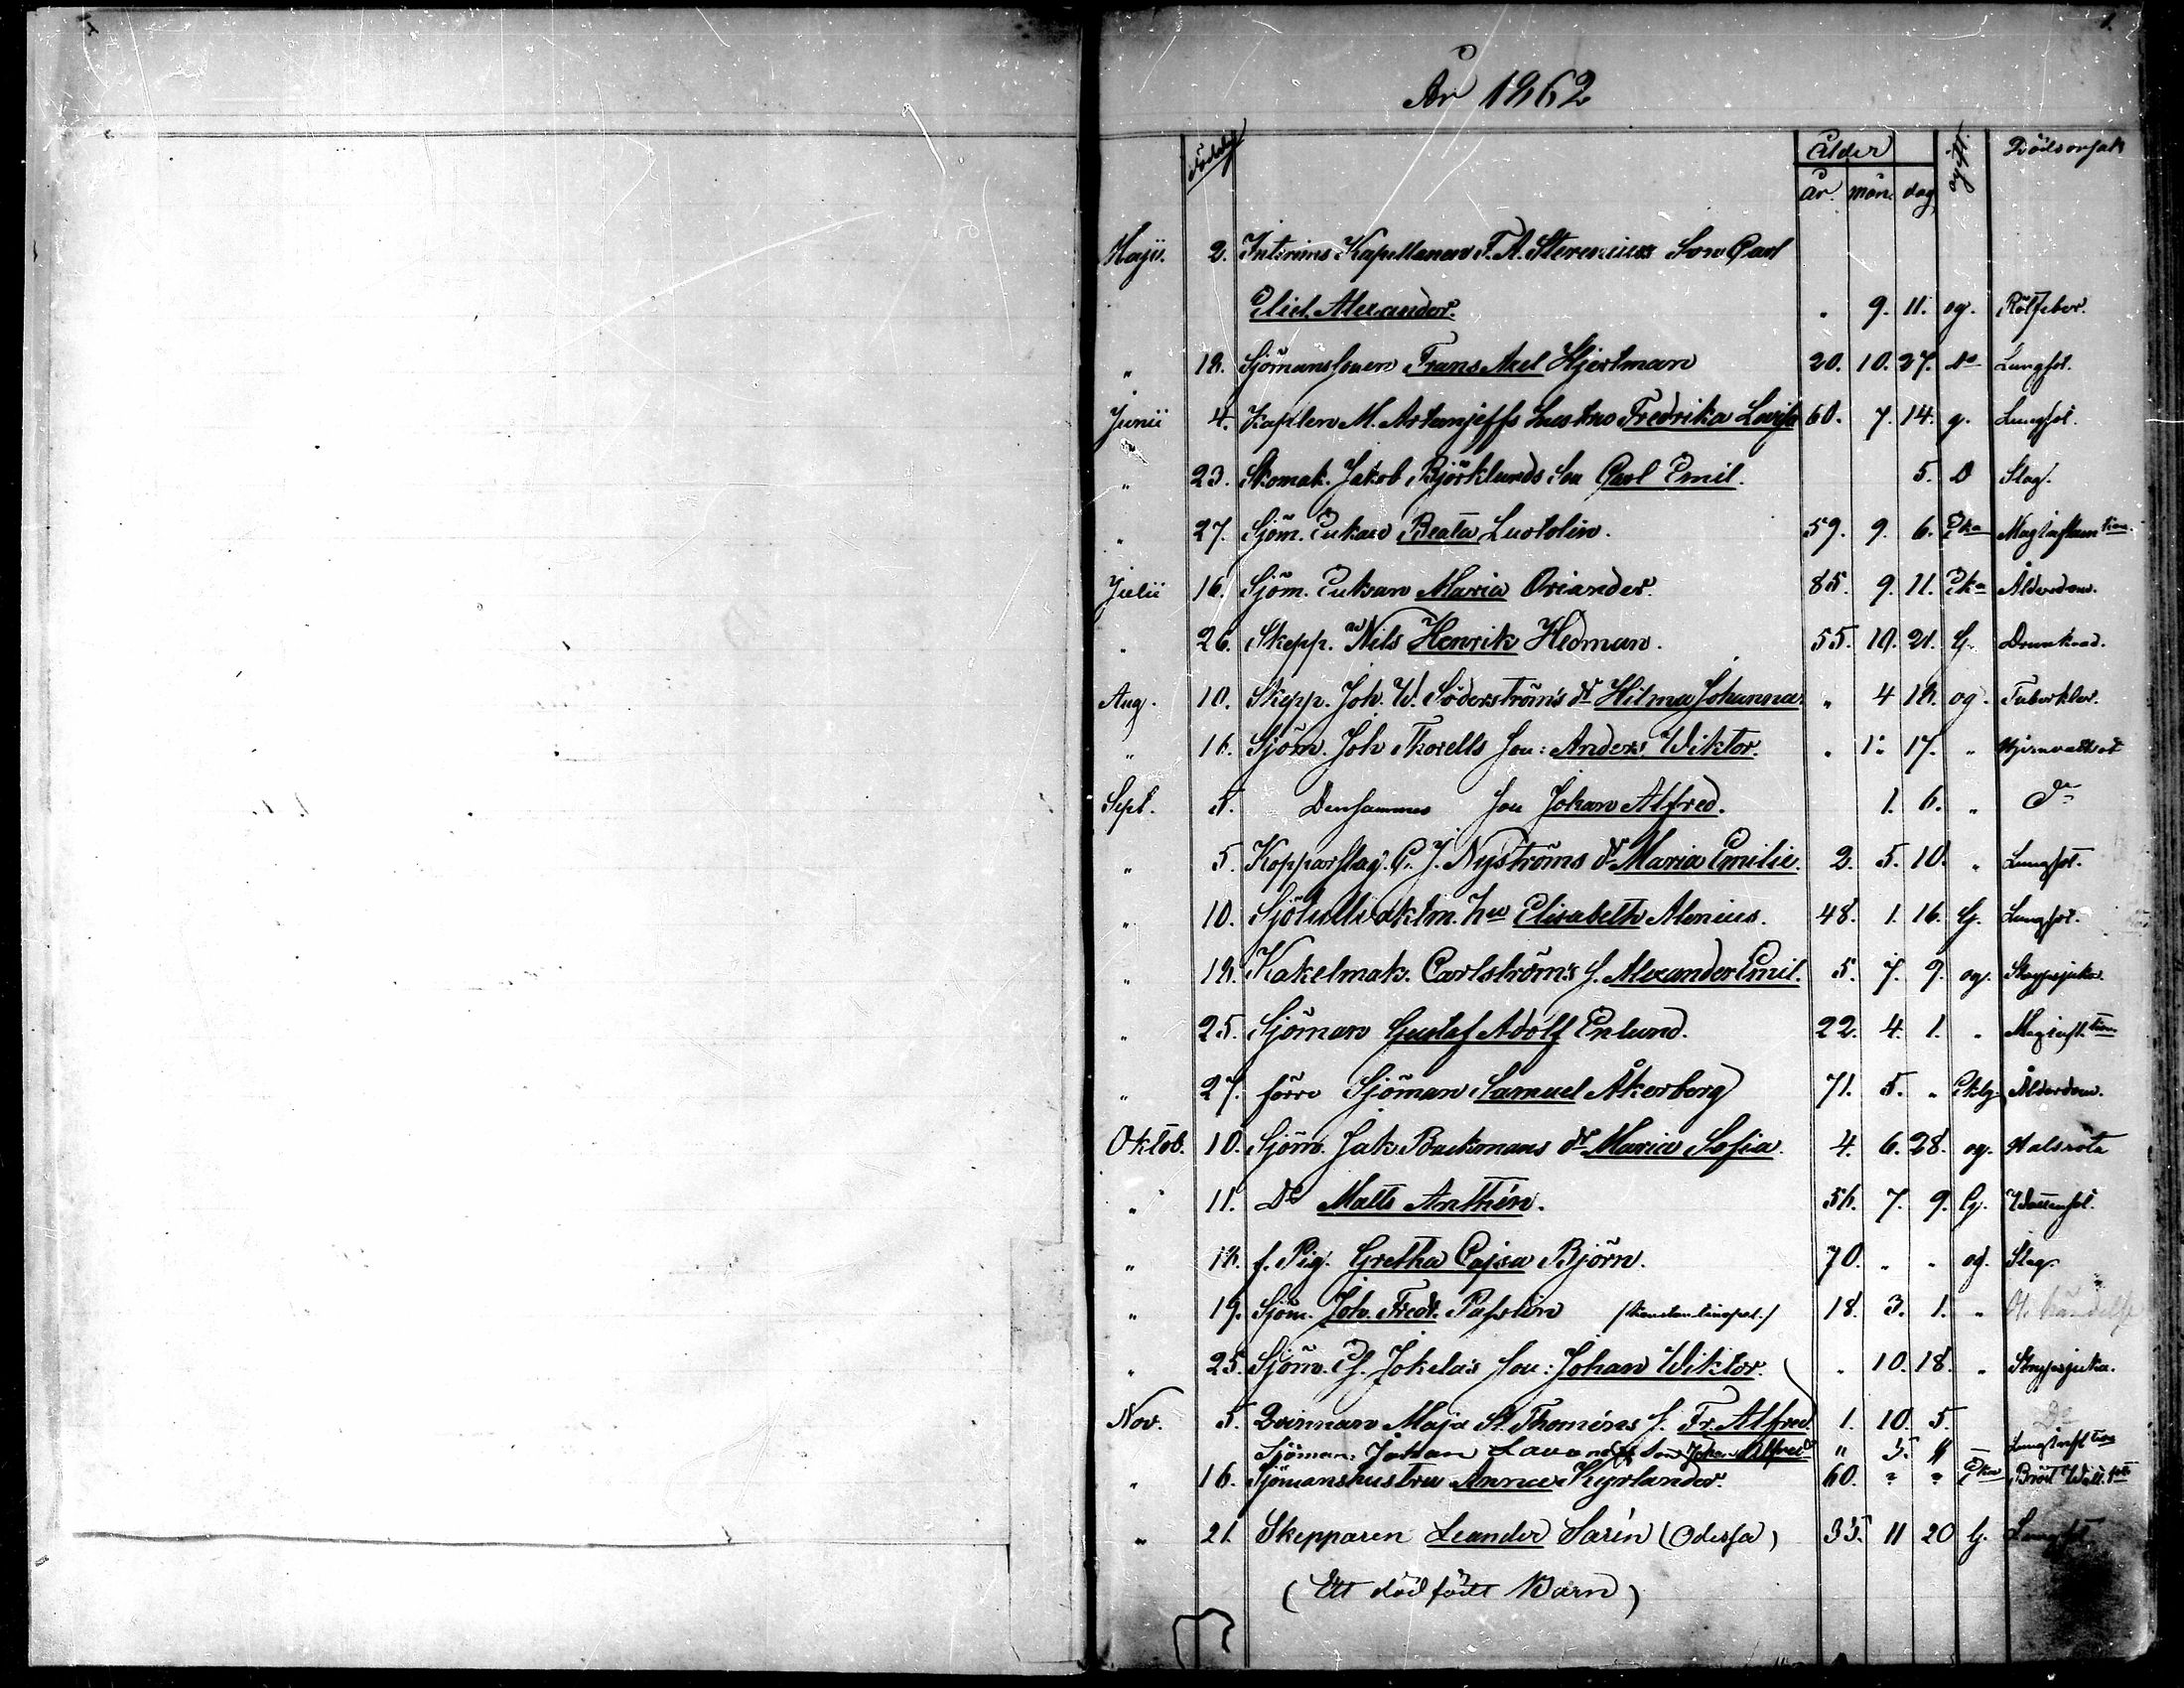 År 1862
Ålder
Dödsorsak
år. mån. dag
Maji. 2. Interims Kapellanen F. A. Stevenius Son Carl
Eliel Alexander. " 9. 11. og. Rötfeber.
" 18. Sjömanssonen Frans Axel Hjertman 20. 10. 27. Do Lungsot.
Junii 4. Kapten M. Artemjeffs hustru Fredrika Lovisa 60. 7. 14. g. Lungsot.
" 23. Skomak. Jakob Björklunds Son Carl Emil. 5. Slag.
" 27. Sjöm. Enkan Beata Lustolin. 59. 9. 6. Eka
Julii 16. Sjöm. Enksan Maria Oriander. 85. 9. 11. Eka Ålderdom.
" 26. Skepp. Nils Henrik Hedman. 55. 10. 21. G. Drunknad.
Aug. 10. Skepp. Joh. W. Söderströms dr Hilma Johanna. " 4 18. og. Tuberkler.
" 16. Sjöm. Joh Thorells Son: Anders Wiktor. " 1. 17. "
Sept. 5. Densammes Son Johan Alfred. 1. 6. " Do
" 5. Kopparslag. C. J. Nyströms dr Maria Emilie. 2. 5. 10. " Lungsot.
" 10. Sjötullvaktm. hu Elisabeth Alenius. 48. 1. 16. G. Lungsot.
" 18. Kakelmak. Carlströms S. Alexander Emil. 5. 7. 9. og. Strypsjuka.
" 25. Sjöman Gustaf Adolf Enlund. 22. 4. 1. "
" 27. förre Sjöman Samuel Åkerberg 71. 5. " Eklg. Ålderdom.
Oktob. 10. Sjöm. Jak. Backmans dr Maria Sofia. 4. 6. 28. og. Halsröta
" 11. Do Matts Anthén. 58. 7. 9. G. Wattensot.
" 18. f. Pig. Gretha Cajsa Björn. 70. " " og. Slag.
" 19. Sjöm. Joh. Fredr. Passlin /Konstantinopel./ 18. 3. 1. " Ol. händelse
" 25. Sjöm. Jokelas Son: Johan Wiktor. " 10. 18. " Strypsjuka.
Nov. 5. Qvinnan Maja St. Thoméns S. Fr. Alfred. 1. 10. 5. Do
Sjöman Johan Son Johan Alfred " 5.
" 16. Sjömanshustru Anna Kyrlander. 60. " " Eka
" 21. Skepparen Leander Sarin (Odessa) 35. 11 20 G. Lungsot
(Ett dödfödt Barn)